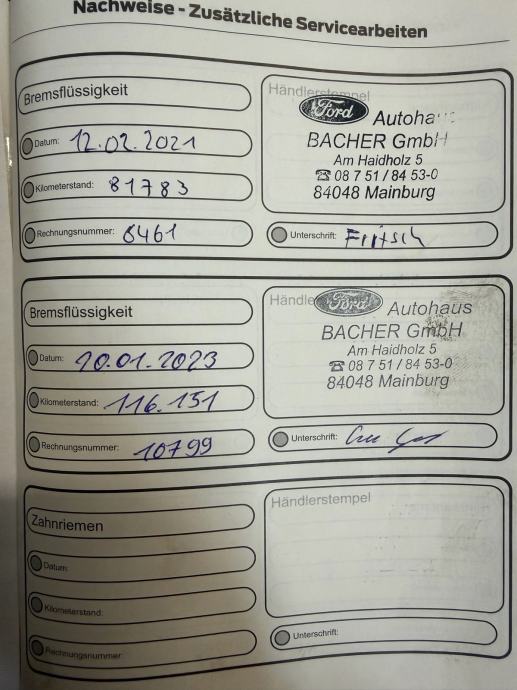 Nachweise - Zusätzliche Servicearbeiten
Bremsflüssigkeit
Datum: 12.02.2021
Kilometerstand: 81783
Rechnungsnummer: 6461
Händlerstempel
Ford Autohaus
BACHER GmbH
Am Haidholz 5
☎ 08 7 51 / 84 53-0
84048 Mainburg
Unterschrift: Fritsch
Bremsflüssigkeit
Datum: 20.01.2023
Kilometerstand: 116.151
Rechnungsnummer: 10799
Händle
Ford Autohaus
BACHER GmbH
Am Haidholz 5
☎ 08 7 51 / 84 53-0
84048 Mainburg
Unterschrift:
Zahnriemen
Datum:
Kilometerstand:
Rechnungsnummer:
Händlerstempel
Unterschrift: